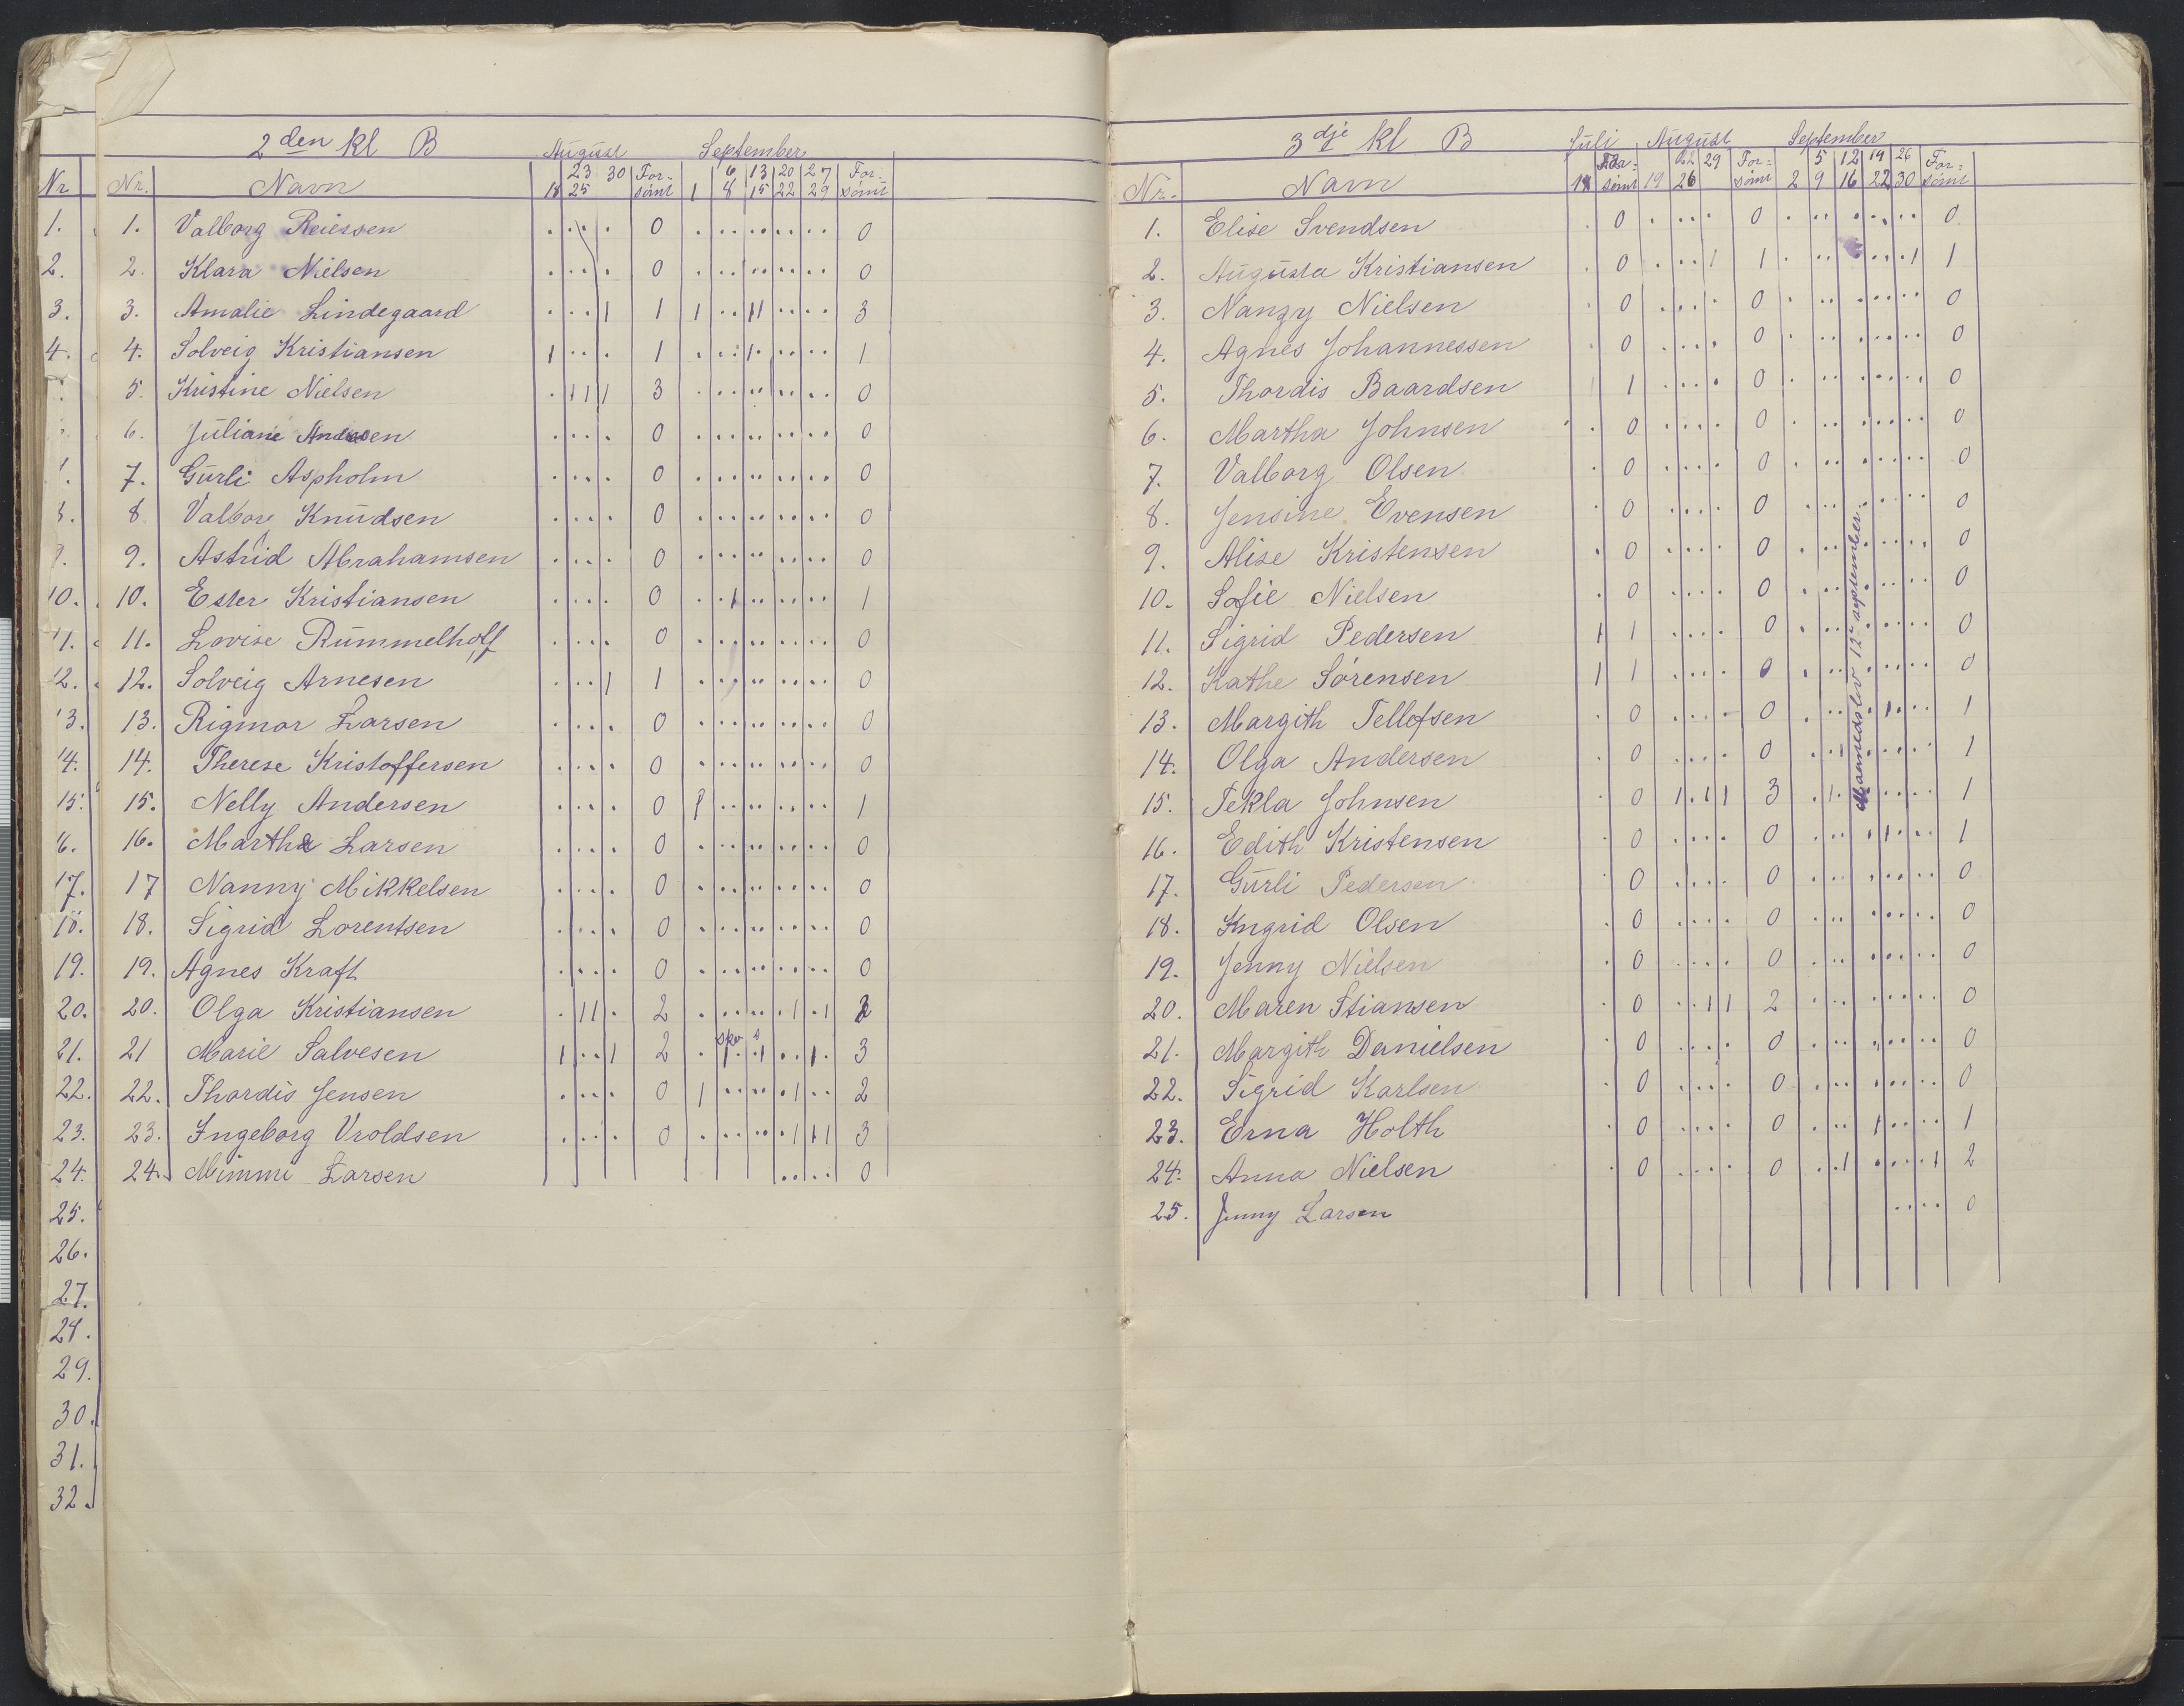 2den kl B
August September
23 30 For- 6 13 20 27 For-
Nr Nr. Navn 18 25 sömt 1 8 15 22 29 sömt
1. 1. Valborg Reiersen 0 0
2. 2. Klara Nielsen 0 0
3. 3. Amalie Lindegaard 1 1 1 11 3
4. 4. Solveig Kristiansen 1 1 1 1
5. Kristine Nielsen 1 1 1 3 0
6. Juliane Andersen 0 0
7. Gurli Aspholm 0 0
8. 8 Valborg Knudsen 0 0
9. 9. Astrid Abrahamsen 0 0
10. 10. Ester Kristiansen 0 1 1
11. 11. Lovise Rummelhoff 0 0
12. 12. Solveig Arnesen 1 1 0
13. 13. Rigmor Larsen 0 0
14. 14. Therese Kristoffersen 0 0
15. 15. Nelly Andersen 0 1 1
16. 16. Martha Larsen 0 0
17. 17 Nanny Mikkelsen 0 0
18. 18. Sigrid Lorentsen 0 0
19. 19. Agnes Kraft 0 0
20. 20. Olga Kristiansen 1 1 2 1 1 2
21. 21 Marie Salvesen 1 1 2 1 1 1 3
22. 22. Thordis Jensen 0 1 1 2
23. 23. Ingeborg Vroldsen 0 1 1 1 3
24. 24. Mimmi Larsen 0
25.
26.
27.
28.
29.
30.
31.
32.
3dje kl B
Juli August September
For- 22 29 For- 5 12 19 26 For-
Nr. Navn 18 sömt 19 26 sömt 2 9 16 22 30 sömt
1. Elise Svendsen 0 0 0
2. Augusta Kristiansen 0 1 1 1 1
3. Nangy Nielsen 0 0 0
4. Agnes Johannessen 0 0 0
5. Thordis Baardsen 1 1 0 0
6. Martha Johnsen 0 0 0
7. Valborg Olsen 0 0 0
8. Jensine Evensen 0 0 0
9. Alise Kristensen 0 0 0
10. Sofie Nielsen 0 0 0
11. Sigrid Pedersen 1 1 0 0
12. Kathe Sörensen 1 1 0 0
13. Margith Tellefsen 0 0 1 1
14. Olga Andersen 0 0 1 1
15. Tekla Johnsen 0 1 1 1 3 1 1
16. Edith Kristensen 0 0 1 1
17. Gurli Pedersen 0 0 0
18. Ingrid Olsen 0 0 0
19. Jenny Nielsen 0 0 0
20. Maren Stiansen 0 1 1 2 0
21. Margith Danielsen 0 0 0
22. Sigrid Karlsen 0 0 0
23. Erna Holth 0 0 1 1
24. Anna Nielsen 0 0 1 1 2
25. Jenny Larsen 0
Maanedslov 12te september